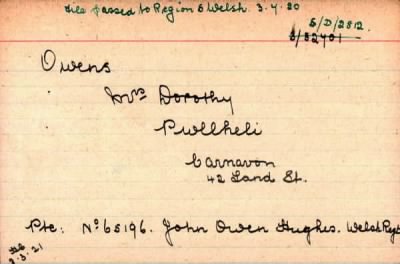 File passed to Region 5 Welsh. 3.4.20
5/D/2812.
3/52401
Owens
Mrs Dorothy
Pwllheli
Carnavon
42 Sand St.
Pte: No 65196. John Owen Hughes. Welsh Regt
3.3.21